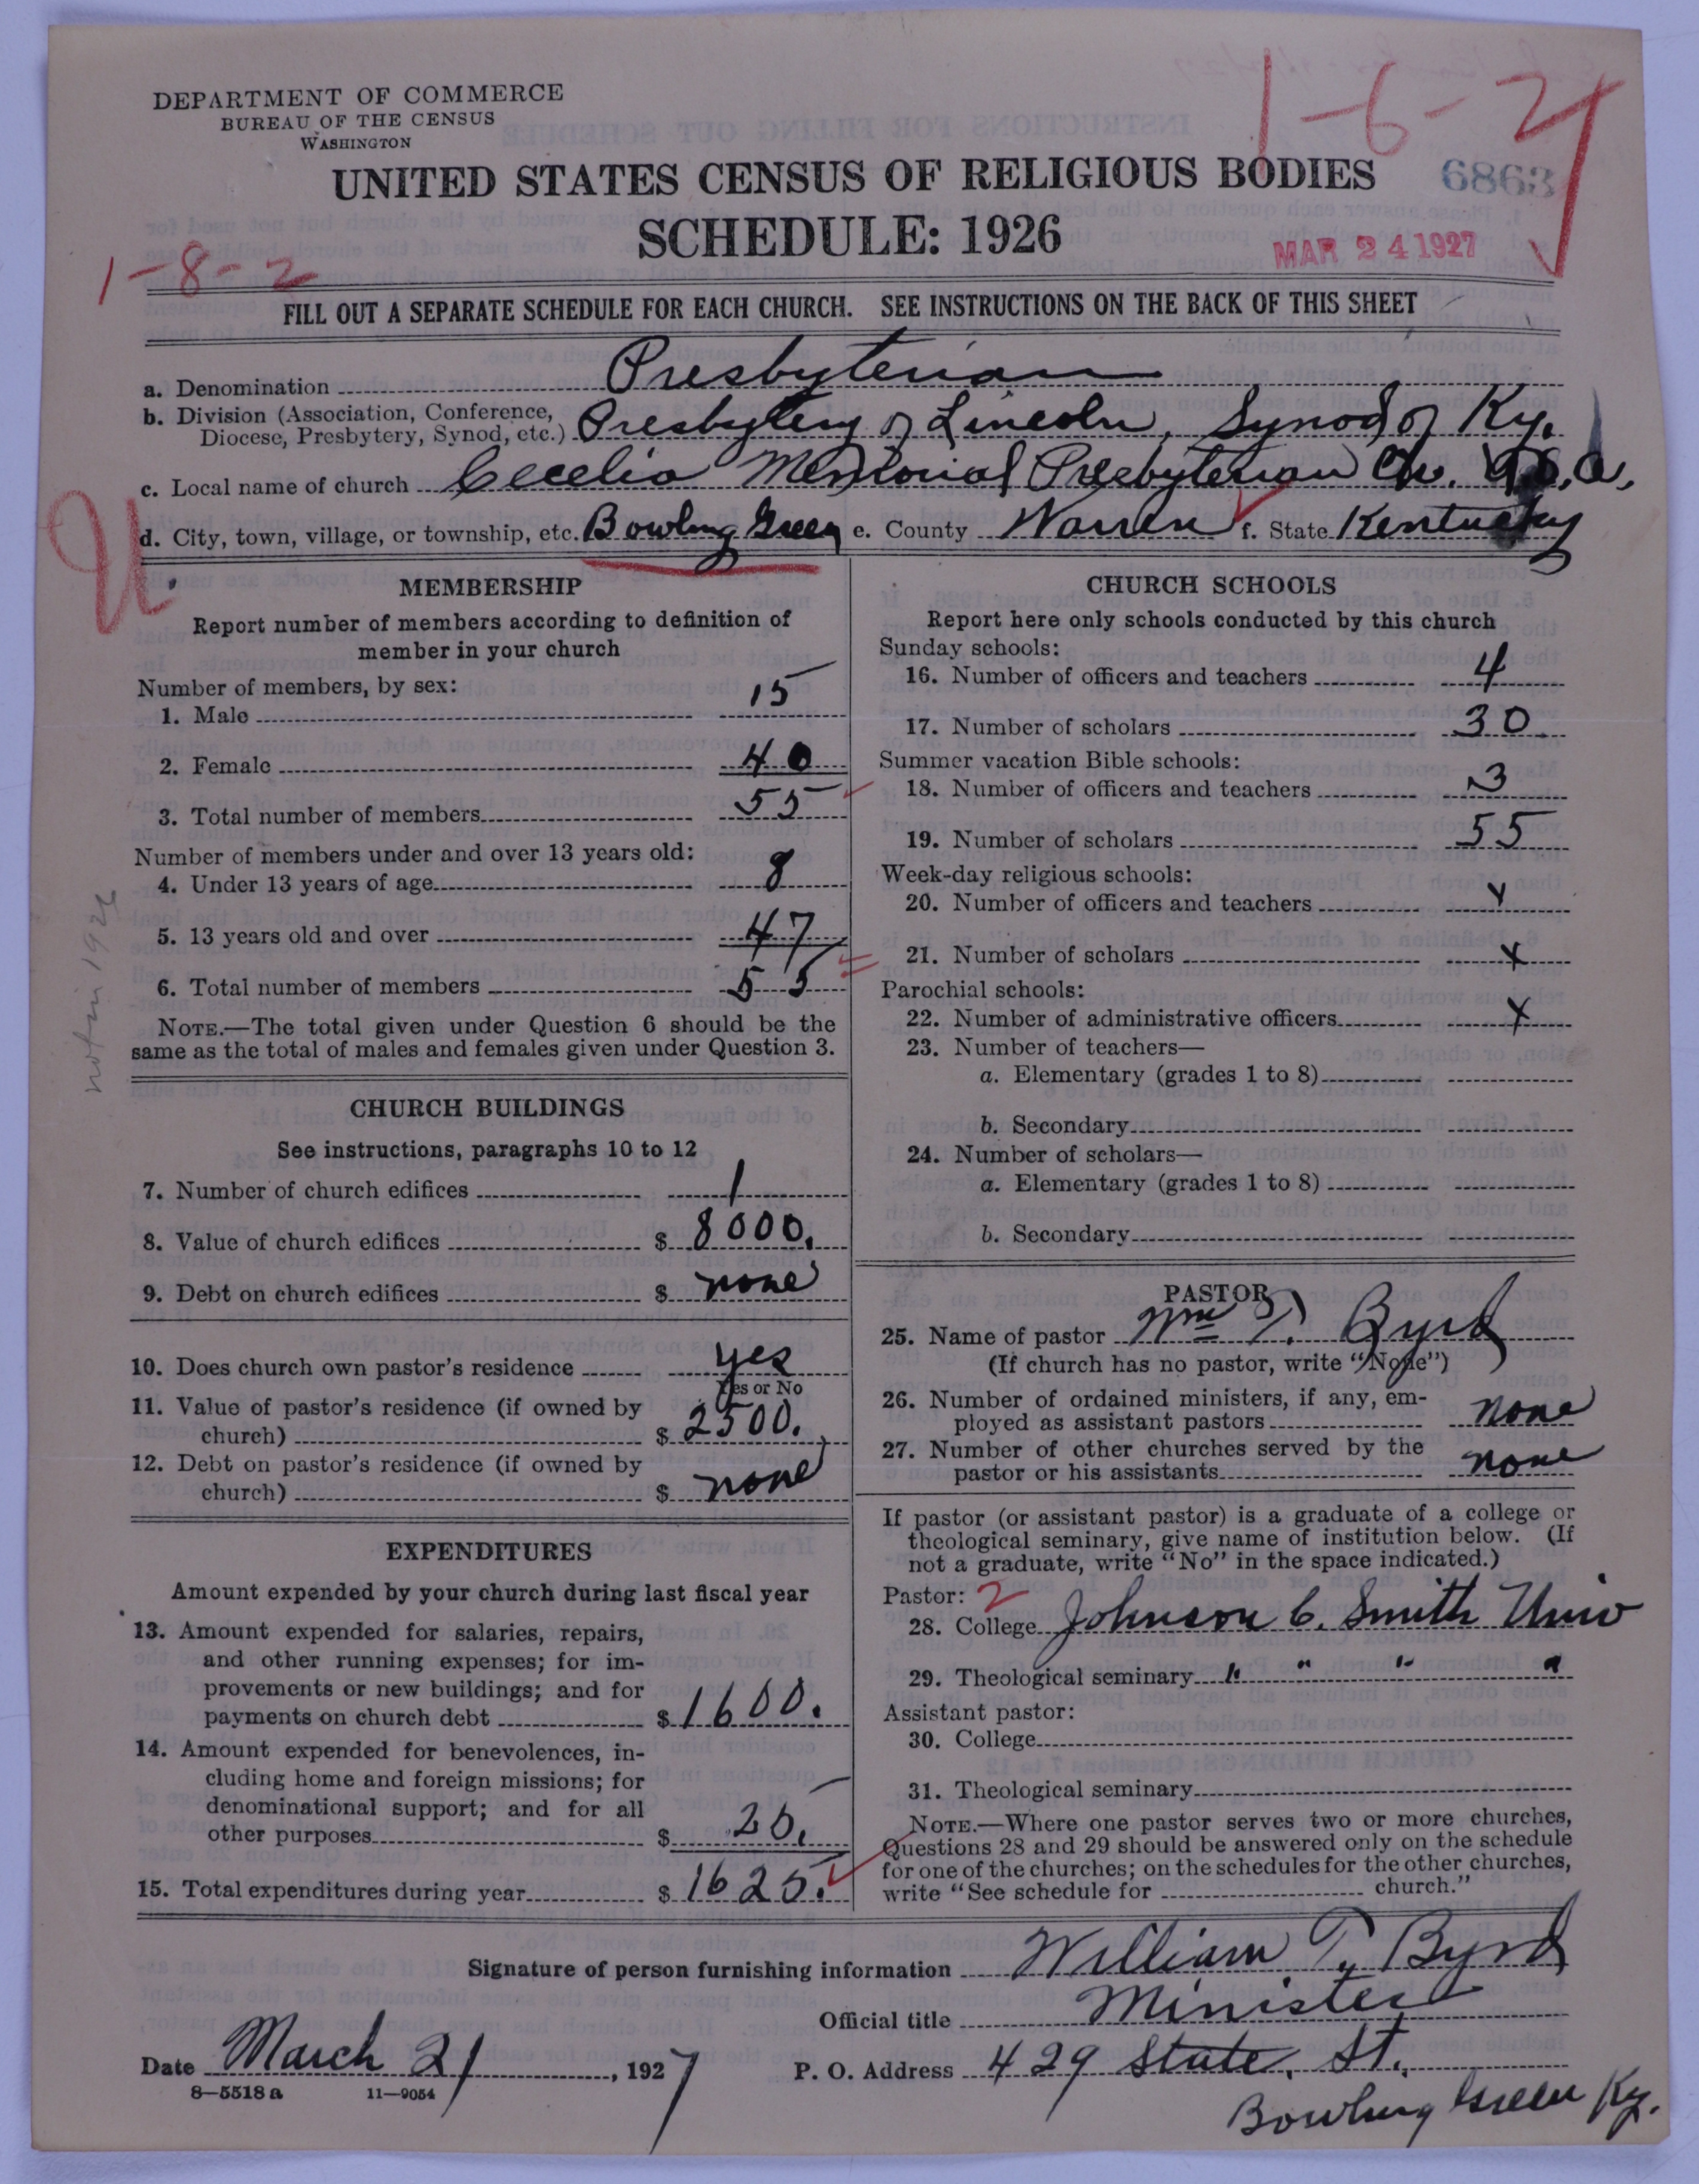 DEPARTMENT OF COMMERCE
BUREAU OF THE CENSUS
WASHINGTON
1-6-2
UNITED STATES CENSUS OF RELIGIOUS BODIES 6863
SCHEDULE: 1926
MAR 24 1927
1-8-2
FILL OUT A SEPARATE SCHEDULE FOR EACH CHURCH. SEE INSTRUCTIONS ON THE BACK OF THIS SHEET
a. Denomination Presbyterian
b. Division (Association, Conference, Diocese, Presbytery, Synod, etc.) Presbytery of Lincoln, Synod of Ky.
c. Local name of church Cecelia Memorial Presbyterian Ch.
d. City, town, village, or township, etc. Bowling Green e. County Warren f. State Kentucky
U
MEMBERSHIP
Report number of members according to definition of
member in your church
Number of members, by sex:
1. Male 15
2. Female 40
3. Total number of members 55
Number of members under and over 13 years old:
4. Under 13 years of age 8
5. 13 years old and over 47
6. Total number of members 55
NOTE.—The total given under Question 6 should be the
same as the total of males and females given under Question 3.
not in 1926
CHURCH BUILDINGS
See instructions, paragraphs 10 to 12
7. Number of church edifices 1
8. Value of church edifices $ 8000.
9. Debt on church edifices $ none
10. Does church own pastor's residence yes
Yes or No
11. Value of pastor's residence (if owned by
church) $ 2500.
12. Debt on pastor's residence (if owned by
church) $ none
EXPENDITURES
Amount expended by your church during last fiscal year
13. Amount expended for salaries, repairs,
and other running expenses; for im-
provements or new buildings; and for
payments on church debt $ 1600.
14. Amount expended for benevolences, in-
cluding home and foreign missions; for
denominational support; and for all
other purposes $ 25.
15. Total expenditures during year $ 1625.
CHURCH SCHOOLS
Report here only schools conducted by this church
Sunday schools:
16. Number of officers and teachers 4
17. Number of scholars 30
Summer vacation Bible schools:
18. Number of officers and teachers 3
19. Number of scholars 55
Week-day religious schools:
20. Number of officers and teachers x
21. Number of scholars x
Parochial schools:
22. Number of administrative officers x
23. Number of teachers—
a. Elementary (grades 1 to 8)
b. Secondary
24. Number of scholars—
a. Elementary (grades 1 to 8)
b. Secondary
PASTOR
25. Name of pastor Wm T. Byrd
(If church has no pastor, write "None")
26. Number of ordained ministers, if any, em-
ployed as assistant pastors none
27. Number of other churches served by the
pastor or his assistants none
If pastor (or assistant pastor) is a graduate of a college or
theological seminary, give name of institution below. (If
not a graduate, write "No" in the space indicated.)
Pastor: 2
28. College Johnson C. Smith Univ
29. Theological seminary " " " "
Assistant pastor:
30. College
31. Theological seminary
NOTE.—Where one pastor serves two or more churches,
Questions 28 and 29 should be answered only on the schedule
for one of the churches; on the schedules for the other churches,
write "See schedule for church."
Signature of person furnishing information William T. Byrd
Official title Minister
Date March 21, 1927 P. O. Address 429 State St.
8—5518a 11—9054
Bowling Green Ky.